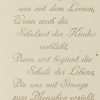 sein mit dem Lernen,
Wenn auch die
Schulzeit des Kindes
verblüht,
Dann erst beginnt die
Schule des Lebens,
Die uns mit Strenge
zum Menschen erzieht